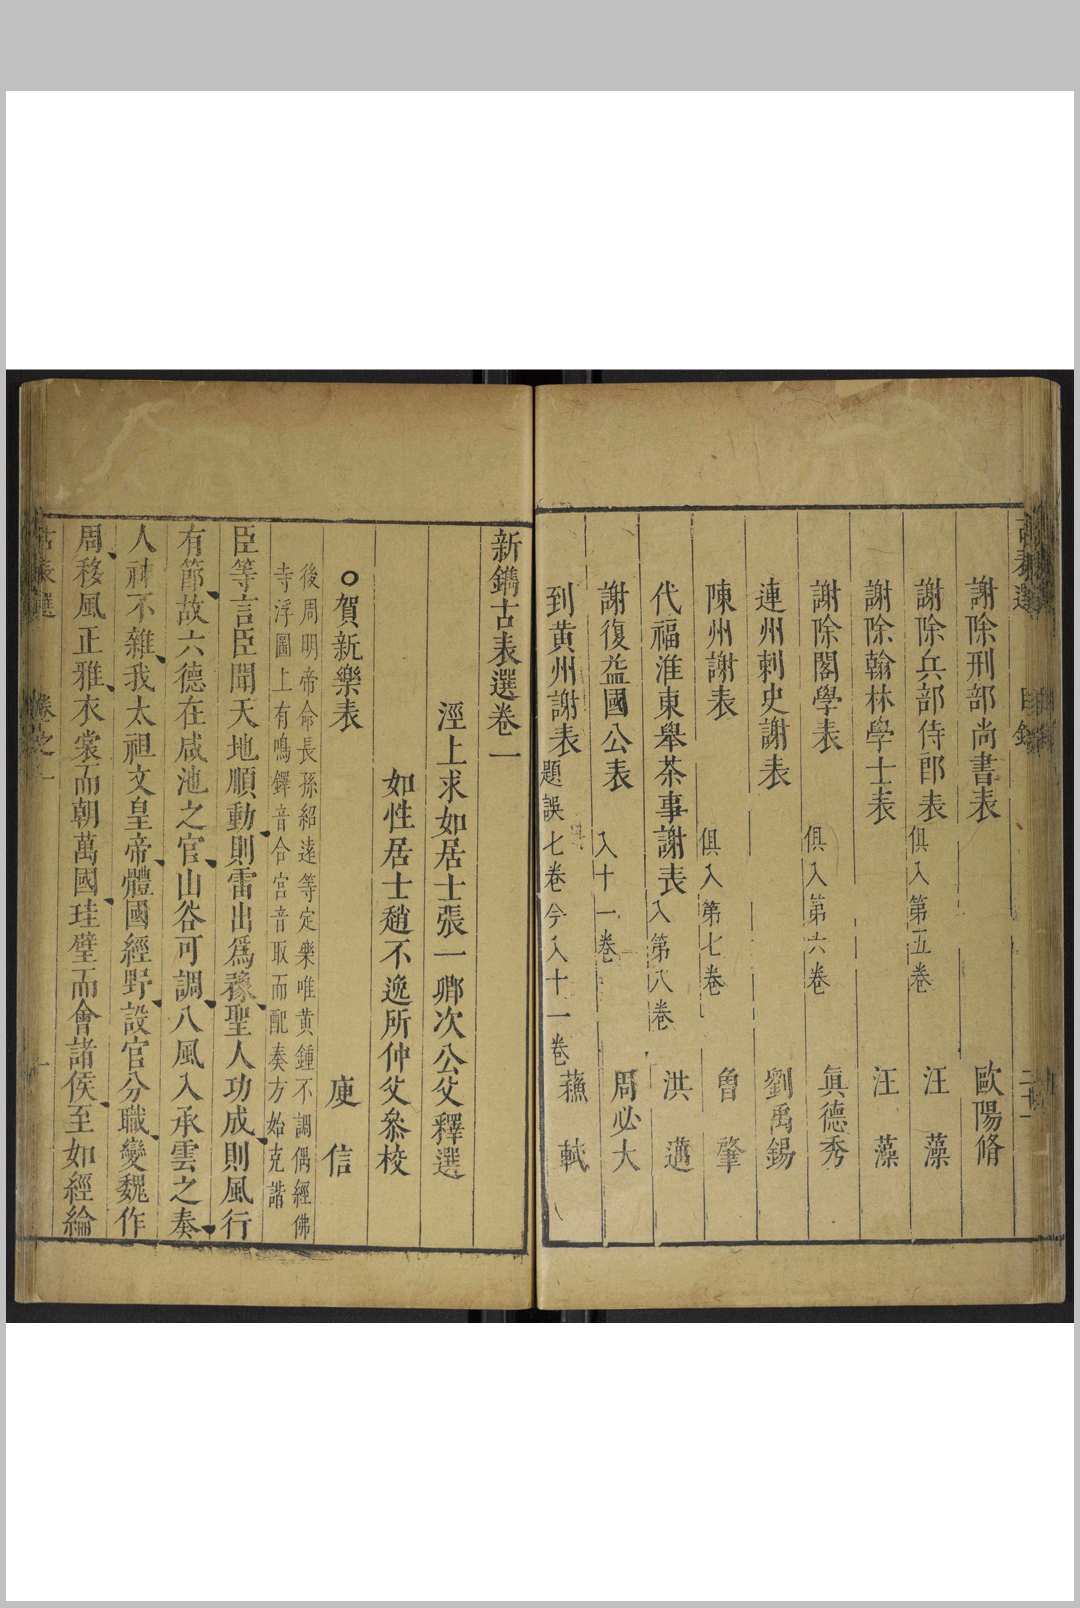 古表選 目錄 二十一
謝除刑部尚書表 歐陽脩
謝除兵部侍郎表 俱入第五卷 汪藻
謝除翰林學士表 汪藻
謝除閣學表 俱入第六卷 眞德秀
連州刺史謝表 劉禹錫
陳州謝表 俱入第七卷 曾肇
代福淮東舉茶事謝表 入第八卷 洪邁
謝復益國公表 入十一卷 周必大
到黃州謝表 題誤七卷今入十一卷 蘇軾
新鐫古表選卷一
涇上求如居士張一卿次公父釋選
如性居士趙不逸所仲父叅校
賀新樂表 庾信
後周明帝命長孫紹遠等定樂唯黃鍾不調偶經佛
寺浮圖上有鳴鐸音合宮音取而配奏方始克諧
臣等言臣聞天地順動則雷出爲豫聖人功成則風行
有節故六德在咸池之官山谷可調八風入承雲之奏
人神不雜我太祖文皇帝體國經野設官分職變魏作
周移風正雅衣裳而朝萬國珪璧而會諸侯至如經綸
古表選 卷之一 一